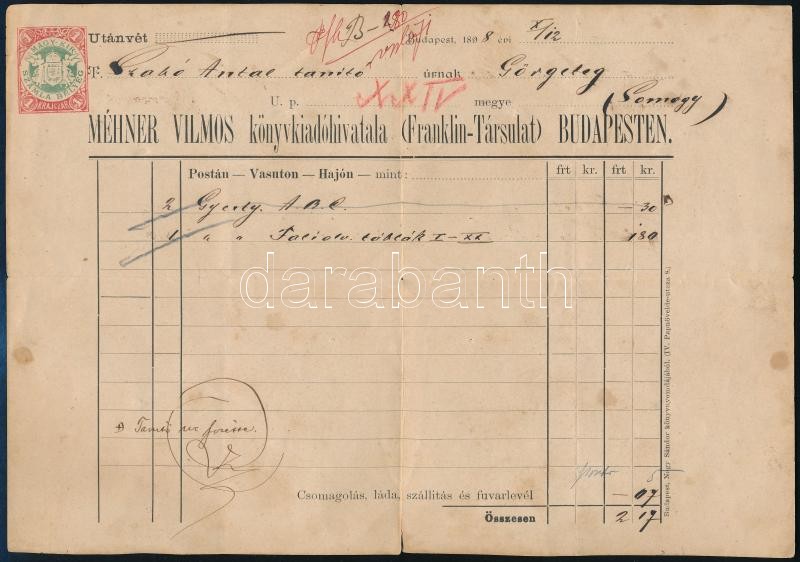 MAGY. KIR.
SZÁMLA BÉLYEG
1 KRAJCZÁR 1
Utánvét
B – 280
Budapest, 1898 évi X/12
T. Szabó Antal tanító úrnak Görgeteg
U. p. XXIV megye (Somogy)
MÉHNER VILMOS könyvkiadóhivatala (Franklin-Társulat) BUDAPESTEN.
Postán — Vasuton — Hajón — mint: frt kr. frt kr.
2 Gyerty. A B C. — 30
1 " " Faliolv. táblák I–XX 1 80
darabanth
Tanító úr
porto 5
Csomagolás, láda, szállitás és fuvarlevél — 07
Összesen 2 17
Budapest, Nagy Sándor könyvnyomdájából. (IV. Papnövelde-utcza 8.)